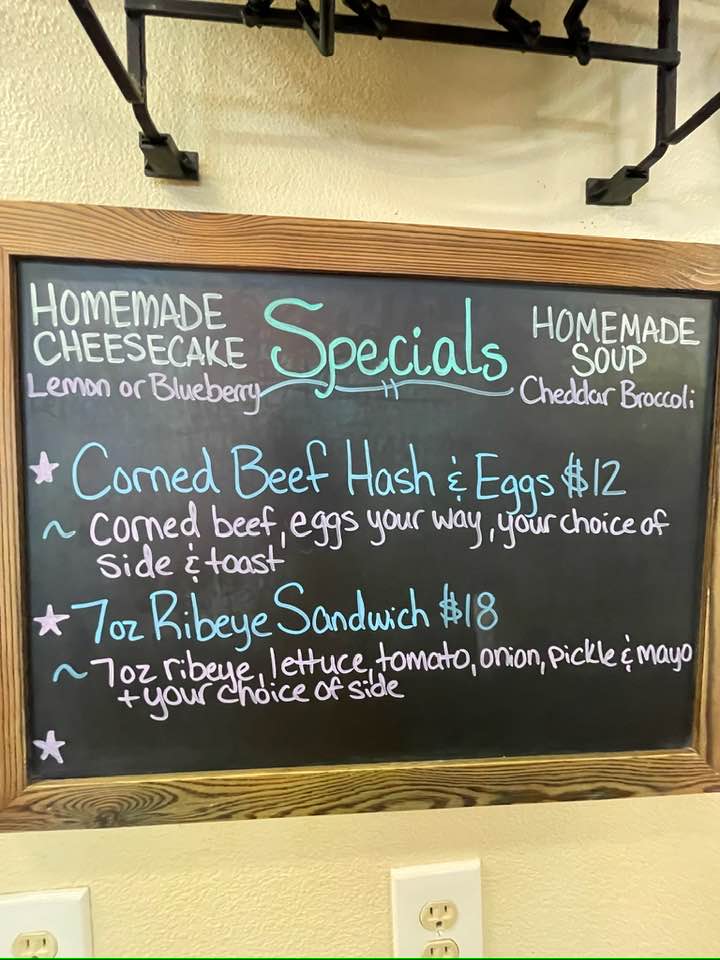 HOMEMADE
CHEESECAKE
Lemon or Blueberry
Specials
HOMEMADE
SOUP
Cheddar Broccoli
Corned Beef Hash & Eggs $12
~ Corned beef, eggs your way, your choice of
side & toast
7oz Ribeye Sandwich $18
~ 7oz ribeye, lettuce, tomato, onion, pickle & mayo
+ your choice of side